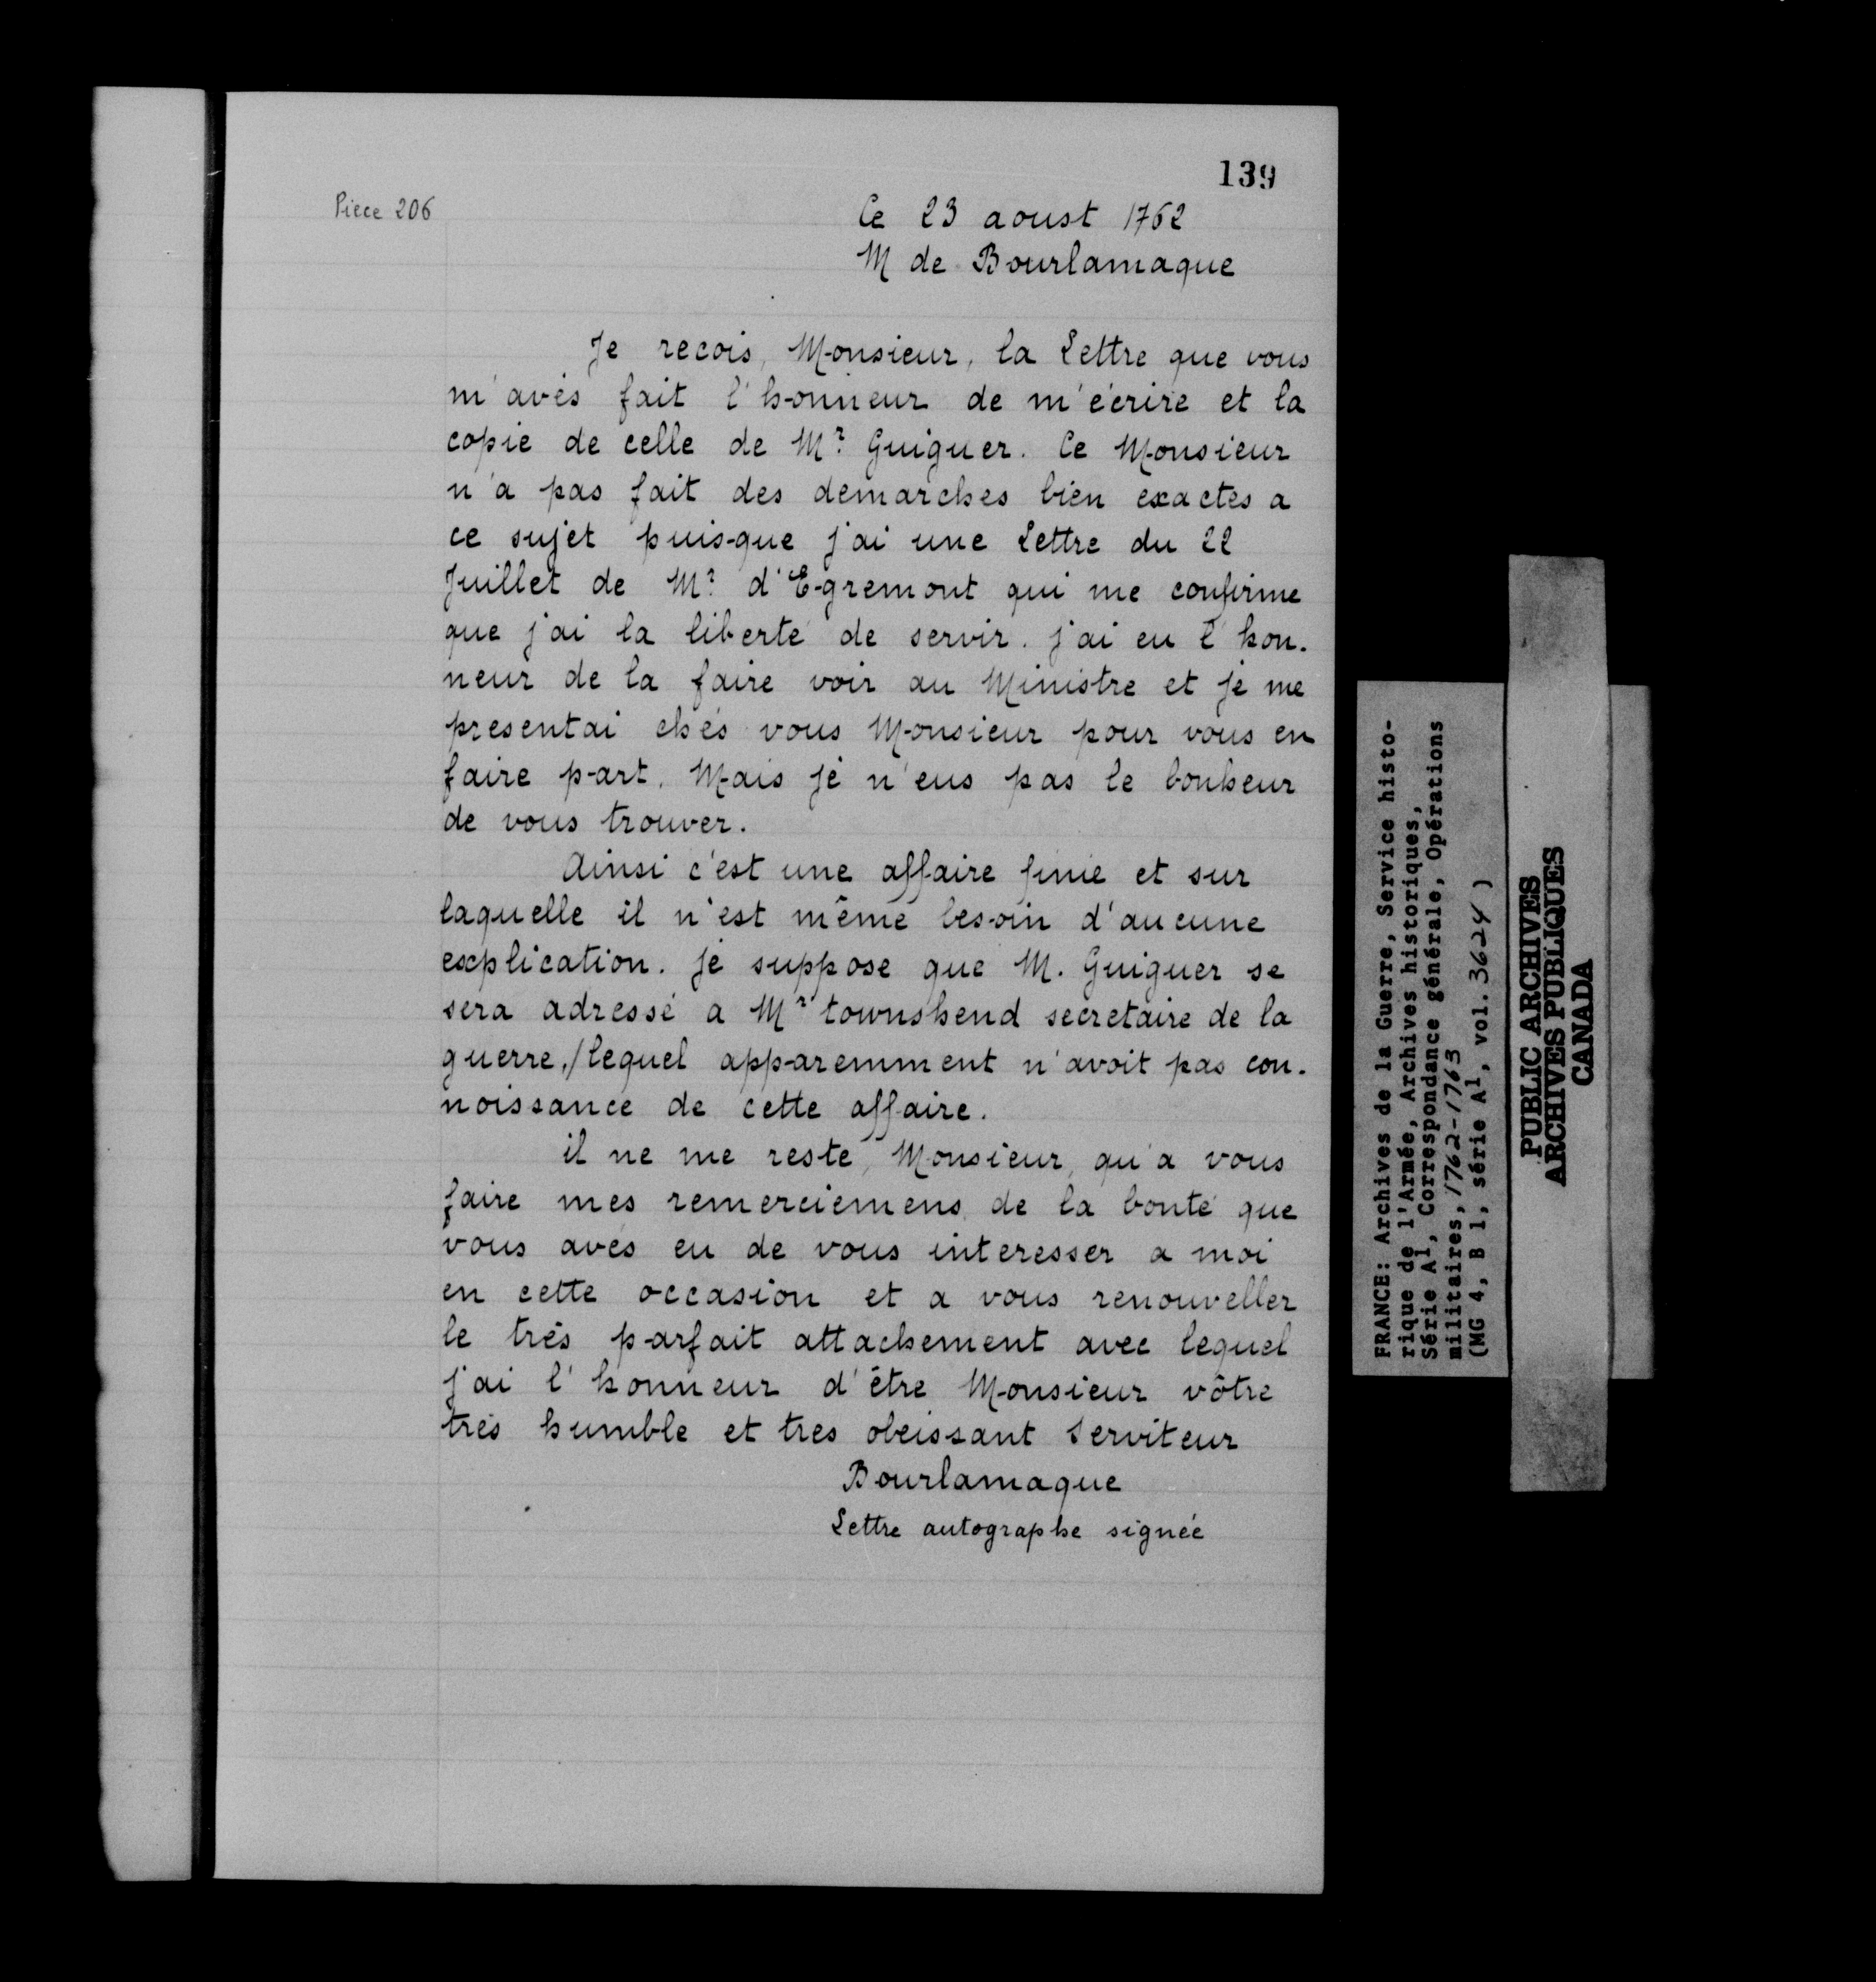 139
Piece 206
Ce 23 aoust 1762
M de Bourlamaque
Je recois, Monsieur, la Lettre que vous
m'avés fait l'honneur de m'écrire et la
copie de celle de Mr. Guiguer. Ce Monsieur
n'a pas fait des demarches bien exactes a
ce sujet puisque j'ai une Lettre du 22
Juillet de Mr. d'Egremont qui me confirme
que j'ai la liberté de servir. j'ai eu l'hon-
neur de la faire voir au Ministre et je me
presentai chés vous Monsieur pour vous en
faire part. Mais je n'eus pas le bonheur
de vous trouver.
Ainsi c'est une affaire finie et sur
laquelle il n'est même besoin d'aucune
explication. je suppose que M. Guiguer se
sera adressé a Mr townshend secretaire de la
guerre,/lequel apparemment n'avoit pas con-
noissance de cette affaire.
il ne me reste, Monsieur, qu'a vous
faire mes remerciemens de la bonté que
vous avés eu de vous interesser a moi
en cette occasion et a vous renouveller
le trés parfait attachement avec lequel
j'ai l'honneur d'être Monsieur vôtre
trés humble et tres obeissant Serviteur
Bourlamaque
Lettre autographe signée
FRANCE: Archives de la Guerre, Service histo-
rique de l'Armée, Archives historiques,
Série A1, Correspondance générale, Opérations
militaires, 1762-1763
(MG 4, B 1, série A1, vol. 3624)
PUBLIC ARCHIVES
ARCHIVES PUBLIQUES
CANADA